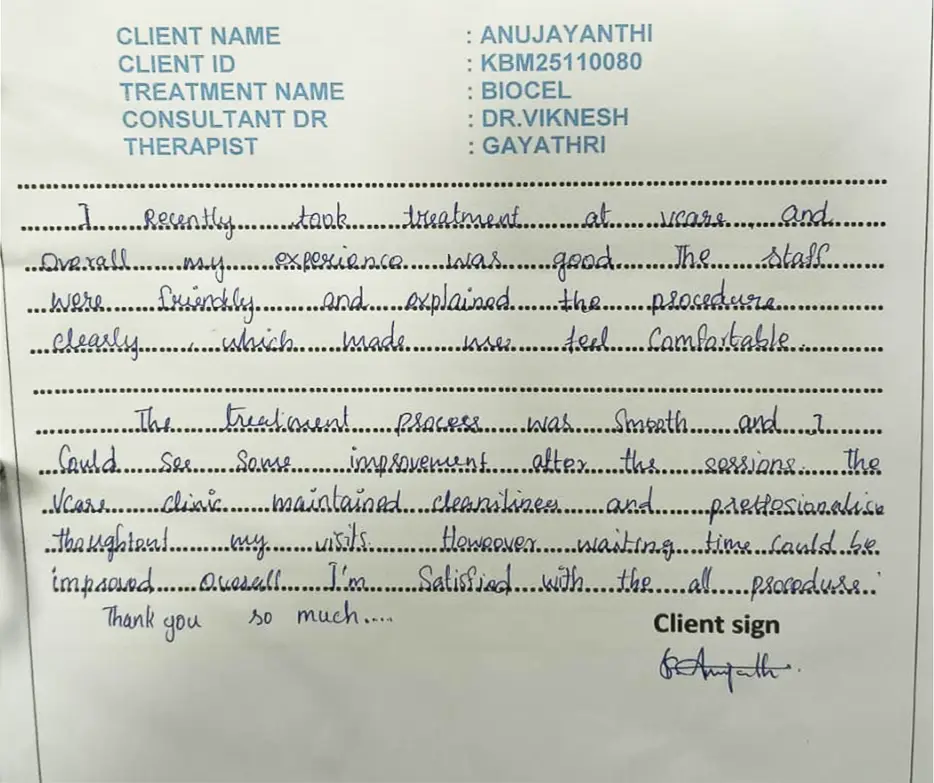 CLIENT NAME : ANUJAYANTHI
CLIENT ID : KBM25110080
TREATMENT NAME : BIOCEL
CONSULTANT DR : DR.VIKNESH
THERAPIST : GAYATHRI
I Recently took treatment at vcare and
Overall my experience was good The staff
were friendly and explained the procedure
clearly , which made me feel Comfortable.
The treatment process was Smooth and I
Could See Some improvement after the sessions. The
Vcare clinic maintained cleanilines and
thoughtout my visits. However waiting time could be
improved Overall I'm Satisfied with the all procedure.
Thank you so much....
Client sign